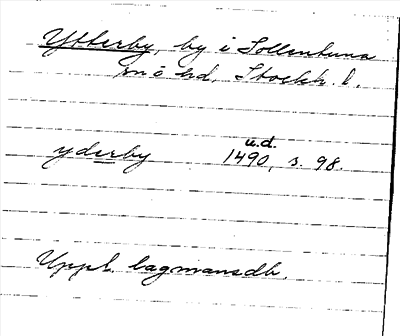 Ytterby, by i Sollentuna
sn o hd, Stockh. l.
u.d.
yderby 1490, s. 98.
Uppl. lagmansdb.